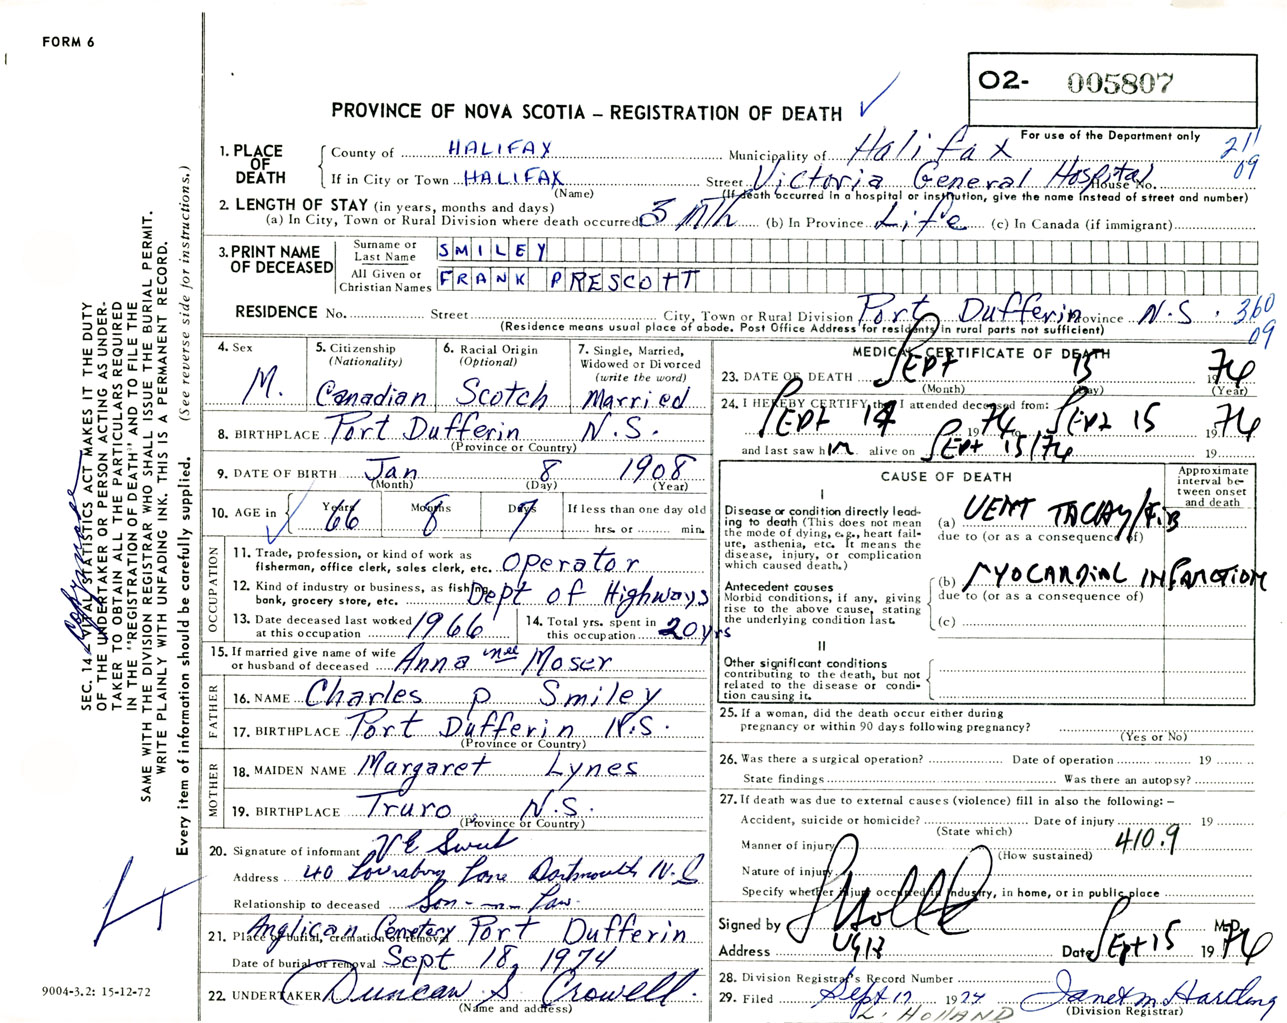 FORM 6
O2- 005807
PROVINCE OF NOVA SCOTIA – REGISTRATION OF DEATH
For use of the Department only
211
09
1. PLACE OF DEATH
County of HALIFAX Municipality of Halifax
If in City or Town HALIFAX Street Victoria General Hospital House No.
(Name) (If death occurred in a hospital or institution, give the name instead of street and number)
2. LENGTH OF STAY (in years, months and days)
(a) In City, Town or Rural Division where death occurred 3 mth (b) In Province Life (c) In Canada (if immigrant)
3. PRINT NAME OF DECEASED
Surname or Last Name SMILEY
All Given or Christian Names FRANK PRESCOTT
RESIDENCE No. Street City, Town or Rural Division Port Dufferin Province N.S. 360
09
(Residence means usual place of abode. Post Office Address for residents in rural parts not sufficient)
4. Sex M.
5. Citizenship (Nationality) Canadian
6. Racial Origin (Optional) Scotch
7. Single, Married, Widowed or Divorced (write the word) Married
8. BIRTHPLACE Port Dufferin N.S.
(Province or Country)
9. DATE OF BIRTH Jan 8 1908
(Month) (Day) (Year)
10. AGE in Years 66 Months 8 Days 7 If less than one day old
hrs. or min.
OCCUPATION
11. Trade, profession, or kind of work as fisherman, office clerk, sales clerk, etc. Operator
12. Kind of industry or business, as fishing, bank, grocery store, etc. Dept of Highways
13. Date deceased last worked at this occupation 1966
14. Total yrs. spent in this occupation 20 yrs
15. If married give name of wife or husband of deceased Anna nee Moser
FATHER
16. NAME Charles P Smiley
17. BIRTHPLACE Port Dufferin N.S.
(Province or Country)
MOTHER
18. MAIDEN NAME Margaret Lynes
19. BIRTHPLACE Truro N.S.
(Province or Country)
20. Signature of informant V E Sweet
Address 40 Louisburg Lane Dartmouth N.S
Relationship to deceased Son-in-Law
21. Place of burial, cremation or removal Anglican Cemetery Port Dufferin
Date of burial or removal Sept 18, 1974
22. UNDERTAKER Duncan S. Crowell.
(Name and address)
MEDICAL CERTIFICATE OF DEATH
23. DATE OF DEATH Sept 15 1974
(Month) (Day) (Year)
24. I HEREBY CERTIFY that I attended deceased from:
Sept 14 1974 to Sept 15 1974
and last saw him alive on Sept 15/74 19
CAUSE OF DEATH
Approximate interval between onset and death
I
Disease or condition directly leading to death (This does not mean the mode of dying, e.g., heart failure, asthenia, etc. It means the disease, injury, or complication which caused death.)
(a) VENT TACHY/FIB
due to (or as a consequence of)
Antecedent causes
Morbid conditions, if any, giving rise to the above cause, stating the underlying condition last.
(b) MYOCARDIAL INFARCTION
due to (or as a consequence of)
(c)
II
Other significant conditions contributing to the death, but not related to the disease or condition causing it.
25. If a woman, did the death occur either during pregnancy or within 90 days following pregnancy?
(Yes or No)
26. Was there a surgical operation? Date of operation 19
State findings Was there an autopsy?
27. If death was due to external causes (violence) fill in also the following: –
Accident, suicide or homicide? Date of injury 19
(State which)
Manner of injury 410.9
(How sustained)
Nature of injury
Specify whether injury occurred in industry, in home, or in public place
Signed by M.D.
Address VGH Date Sept 15 1974
28. Division Registrar's Record Number
29. Filed Sept 17 1974 Janet M. Hartling
(Division Registrar)
L. HOLLAND
SEC. 14 – VITAL STATISTICS ACT MAKES IT THE DUTY
OF THE UNDERTAKER OR PERSON ACTING AS UNDER-
TAKER TO OBTAIN ALL THE PARTICULARS REQUIRED
IN THE "REGISTRATION OF DEATH" AND TO FILE THE
SAME WITH THE DIVISION REGISTRAR WHO SHALL ISSUE THE BURIAL PERMIT.
WRITE PLAINLY WITH UNFADING INK. THIS IS A PERMANENT RECORD.
Every item of information should be carefully supplied. (See reverse side for instructions.)
9004-3.2: 15-12-72